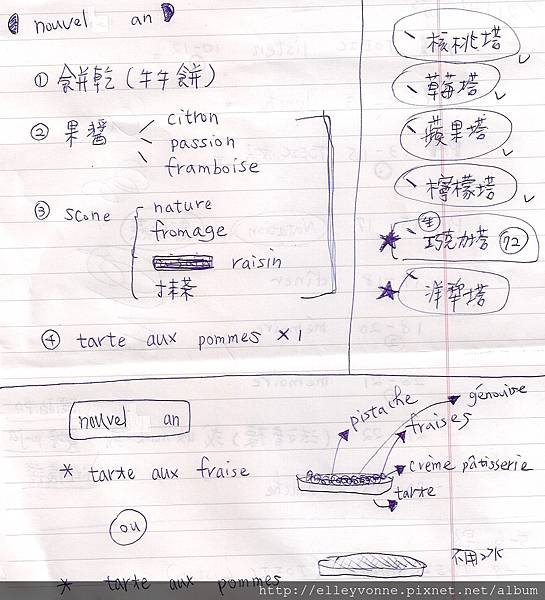 nouvel an
① 餅乾(牛牛餅)
② 果醬
citron
passion
framboise
③ scone
nature
fromage
raisin
抹茶
④ tarte aux pommes ×1
核桃塔
草莓塔
蘋果塔
檸檬塔
生 巧克力塔 72
洋梨塔
nouvel an
* tarte aux fraise
ou
* tarte aux pommes
pistache
génoise
fraises
crème pâtisserie
tarte
不用
http://elleyvonne.pixnet.net/album